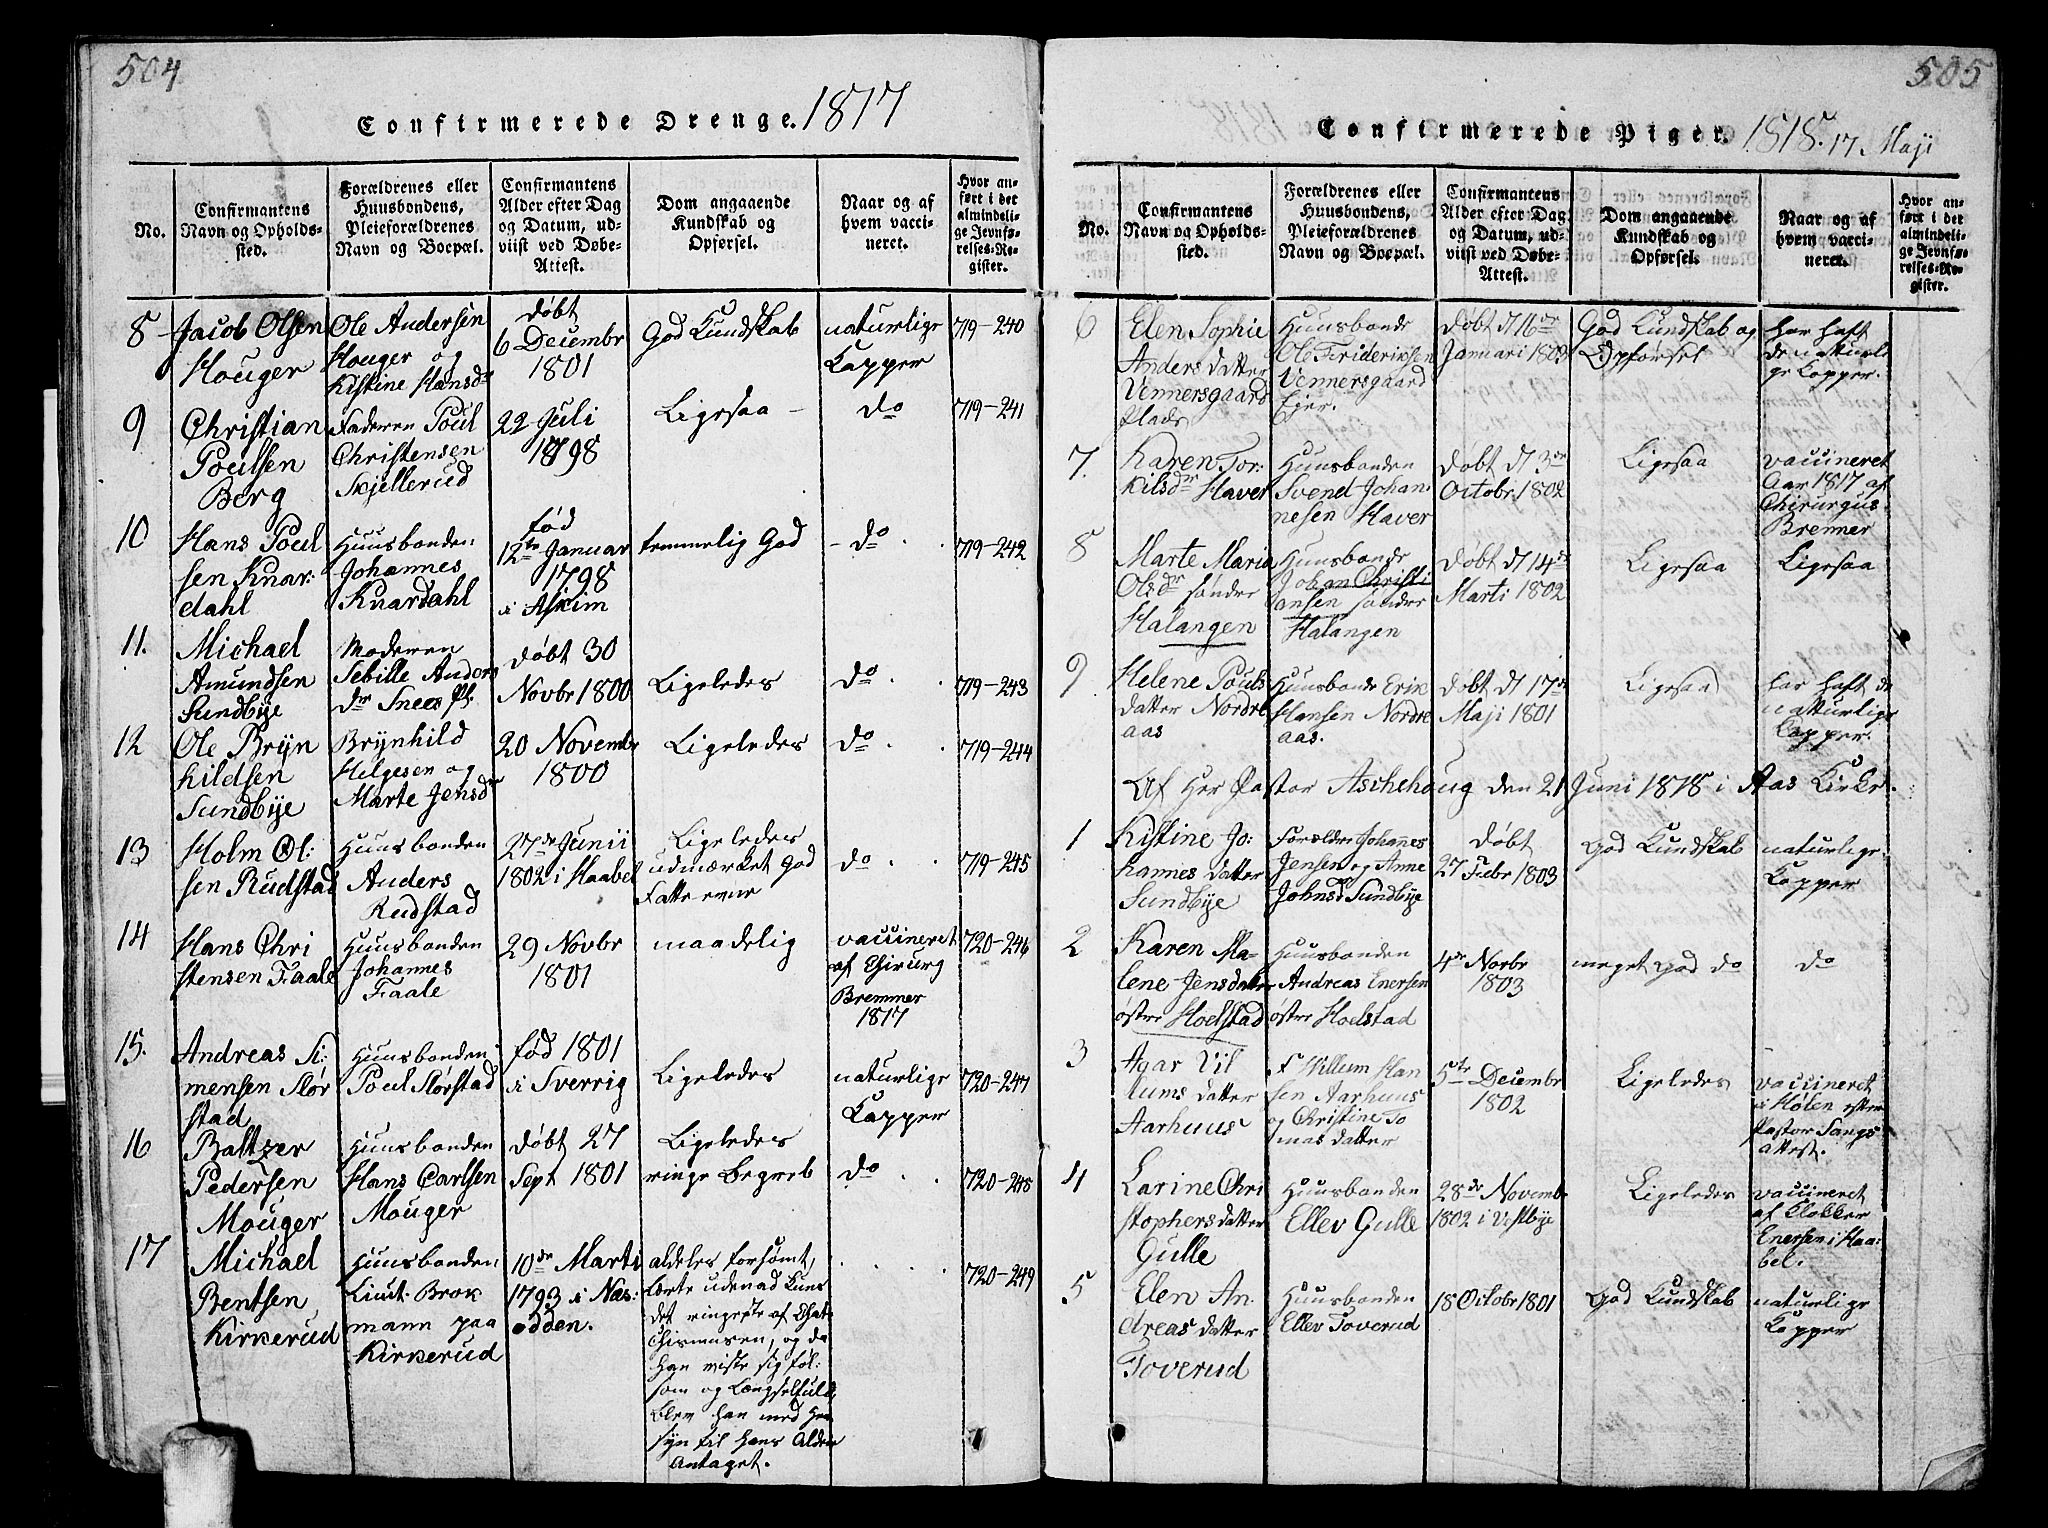 504
Confirmerede Drenge. 1817
No.
Confirmantens
Navn og Opholds-
sted.
Forældrenes eller
Huusbondens,
Pleieforældrenes
Navn og Boepæl.
Confirmantens
Alder efter Dag
og Datum, ud-
viist ved Døbe-
Attest.
Dom angaaende
Kundskab og
Opførsel.
Naar og af
hvem vacci-
neret.
Hvor an-
ført i det
almindeli-
ge Jevnfø-
relses-Re-
gister.
8
Jacob Olsen
Houger
Ole Andersen
Houger og
Kistine Hansdr
døbt
6 Decembr
1801
God Kundskab
naturlige
Kopper
719-240
9
Christian
Poulsen
Berg
Faderen Poul
Christensen
Skjellerud
22 Juli
1798
Ligesaa
do
719-241
10
Hans Poul
sen Knar:
dahl
Huusbonden
Johannes
Knardahl
fød
12te Januar
1798
i Askim
temmelig God
do
719-242
11.
Michael
Amundsen
Sundbye
Moderen
Sebille Anders
dr Snees Pl.
døbt 30
Novbr 1800
Ligeledes
do
719-243
12
Ole Bryn
kildsen
Sundbye
Brynhild
Helgesen og
Marte Jensdr
20 Novembr
1800
Ligeledes
do
719-244
13
Holm Ol:
sen Rudstad
Huusbonden
Anders
Rudstad
27de Junii
1802 i Haabel
Ligeledes
udmærket God
Fatteevne
do
719-245
14
Hans Chri
stensen Faale
Huusbonden
Johannes
Faale
29 Novbr
1801
maadelig
vaccineret
af Chirurg
Bremmer
1817
720-246
15.
Andreas Si:
mensen Slør
stad
Huusbonden
Poul Slørstad
fød 1801
i Sverrig
Ligeledes
naturlige
Kopper
720-247
16
Baltzer
Pedersen
Mouger
Huusbonden
Hans Carlsen
Mouger
døbt 27
Sept 1801
Ligeledes
ringe Begreb
do
720-248
17
Michael
Bentsen
Kirkerud
Huusbonden
Lieut. Brok
mann paa
Kirkerud
10de Marti
1793 i Næs:
odden.
aldeles forsømt,
lærte udenad kuns
det ringeste af Chate
chismusen, og da
han viste sig føl:
som og Længselfuld,
blev han med Hen
syn til hans Alder
Antaget.
720-249
505
Confirmerede Piger. 1818. 17 Maji
No.
Confirmantens
Navn og Opholds-
sted.
Forældrenes eller
Huusbondens,
Pleieforældrenes
Navn og Boepæl.
Confirmantens
Alder efter Dag
og Datum, ud-
viist ved Døbe-
Attest.
Dom angaaende
Kundskab og
Opførsel.
Naar og af
hvem vacci-
neret.
Hvor an-
ført i det
almindeli-
ge Jevnfø-
relses-Re-
gister.
6
Elen Sophie
Anders datter
Vennersgaard
Plads
Huusbonde
Ole Frideriksen
Vennersgaard
Ejer.
Døbt d 16de
Januari 1802
God Kundskab og
Opførsel
har haft
de naturli
ge Kopper.
7.
Karen Tor:
kilsdr Haver
Huusbonden
Svend Johan
nesen Haver
Døbt d 3de
Octobr 1802
Ligesaa
vaccineret
Aar 1817 af
Chirurgus
Bremer
8
Marte Maria
Olsdr søndre
Halangen
Huusbonde
Johan Christi
ansen søndre
Halangen
Døbt d 14de
Marti 1802
Ligesaa
Ligesaa
9
Helene Pouls
datter Nordre
aas
Huusbonde Erik
Hansen Nordre
aas.
Døbt d 17de
Maji 1801
Ligesaa
har haft de
naturlige
Kopper.
Af Her Pastor Aschehoug den 21 Juni 1818 i Aas Kirke.
1
Kistine Jo:
hannes datter
Sundbye
Forældre Johannes
Jensen og Anne
Johnsd Sundbye
døbt
27 Febr 1803
God Kundskab
naturlige
Kopper
2
Karen Ma-
lene Jensdatter
østre Hoelstad
Huusbonden
Andreas Enersen
østre Holstad
4de Novbr
1803
meget god do
do
3
Agar Vil
lums datter
Aarhuus
F Willum Han
sen Aarhuus
og Christine To
mas datter
5te Decembr
1802
Ligeledes
vaccineret
i Hølen efter
Pastor Sangs
attest.
4
Larine Chri
stophersdatter
Gulle
Huusbonden
Ellev Gulle
28de Novemb
1802 i Vestbye
Ligeledes
vaccineret
af Klokker
Enersen i Haa:
bel.
5
Elen An
dreas datter
Toverud
Huusbonden
Ellev Toverud
18 Octobr 1801
God Kundskab
naturlige
Kopper